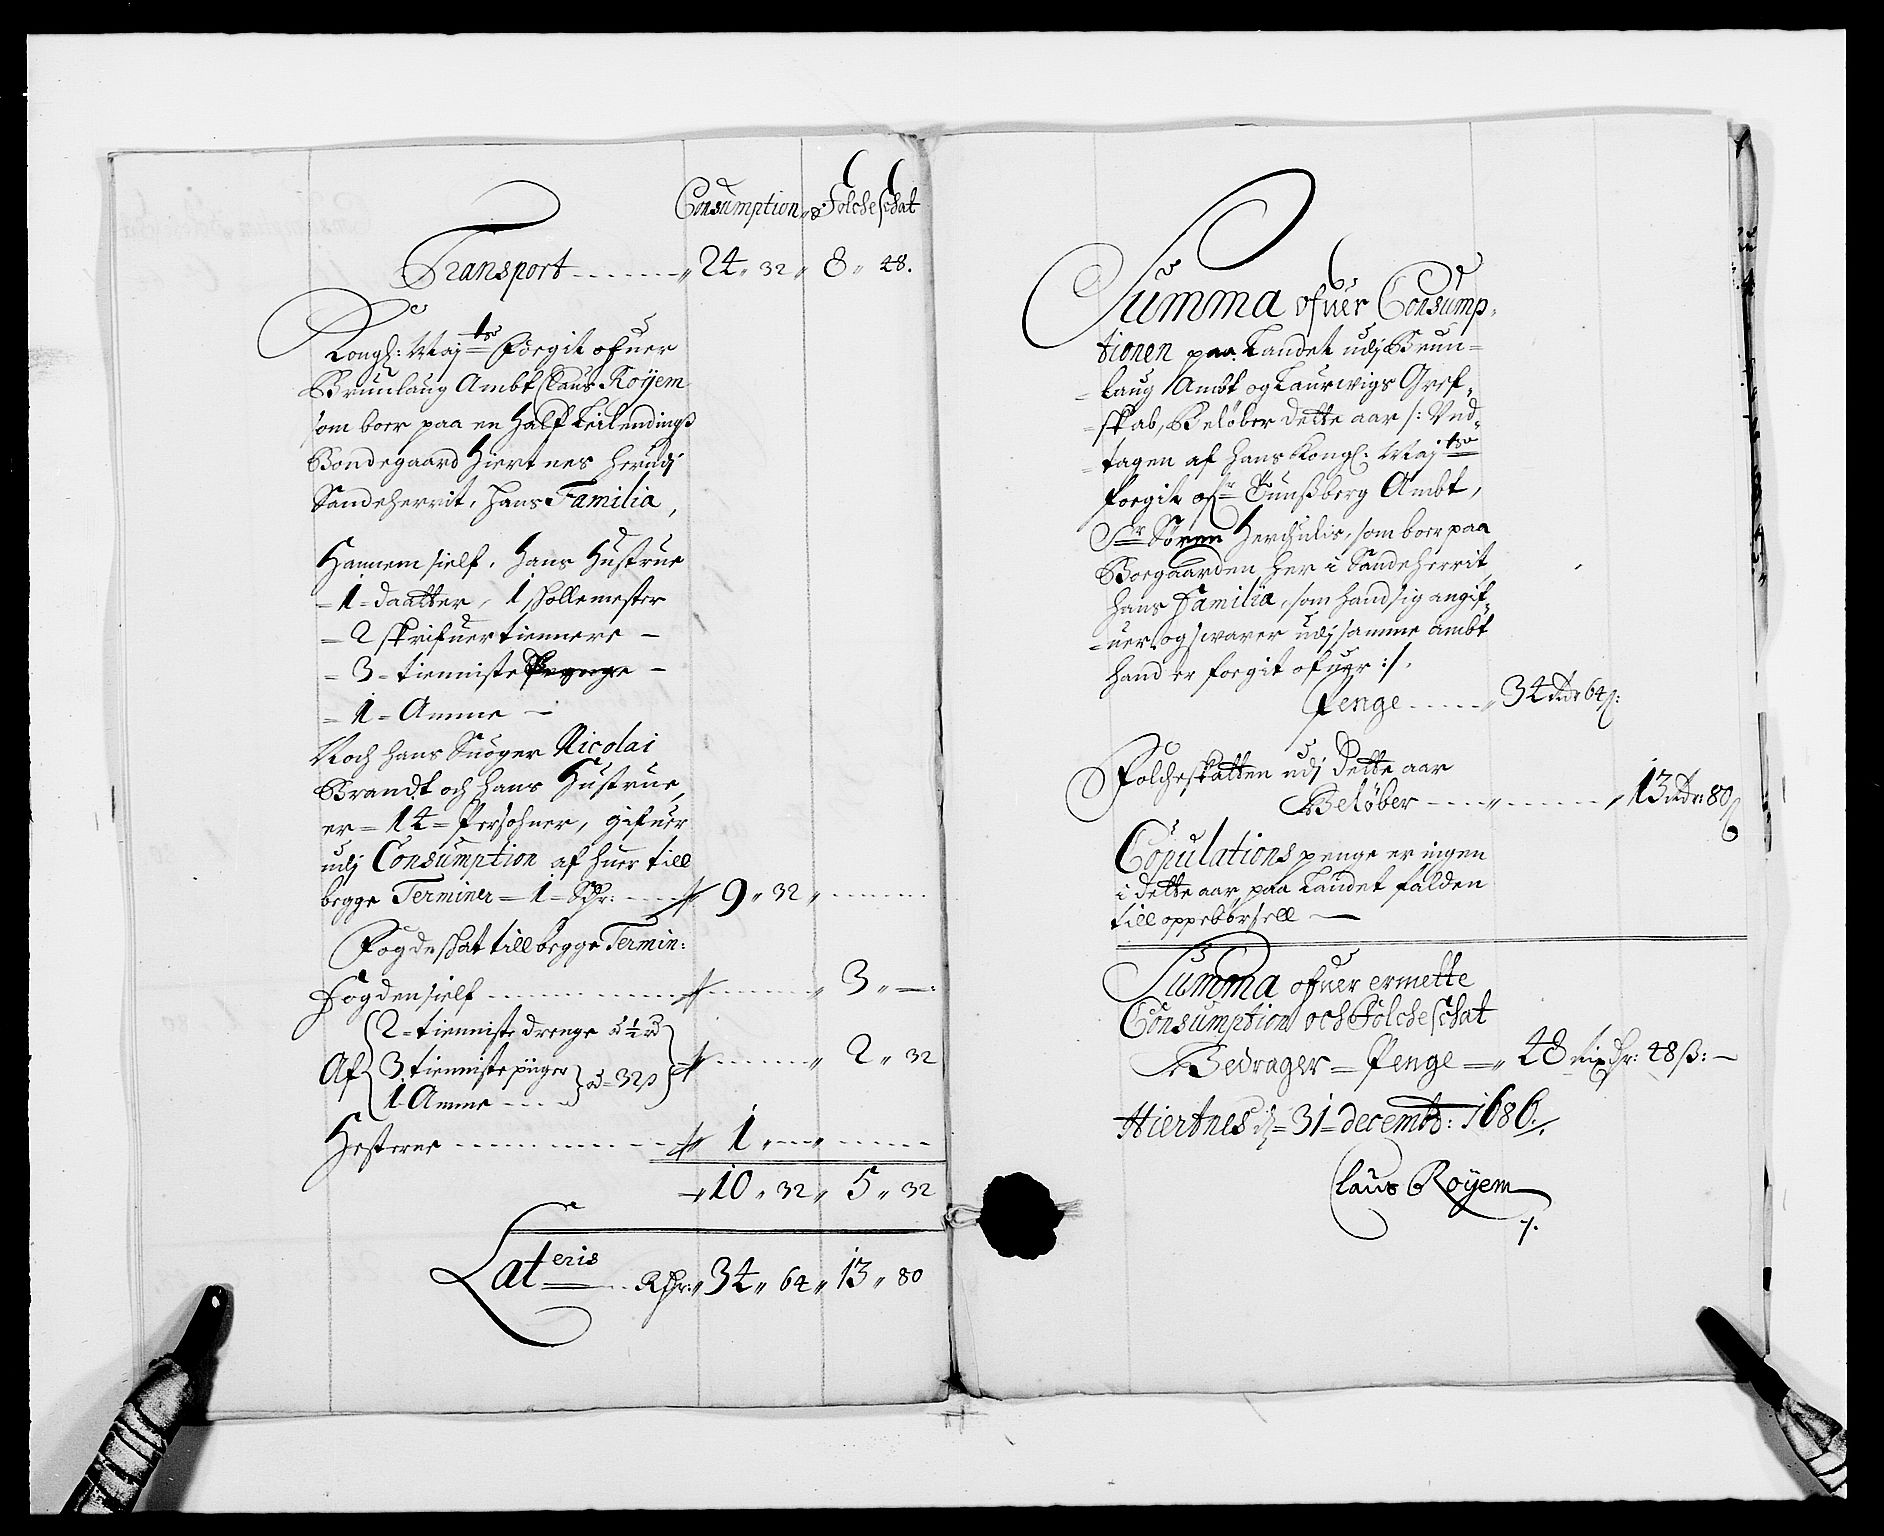 Consumption " & Folcheschat
Transport - - - - " 24 " 32 " 8 " 48.
Kongl: Maj:ts Foegit ofuer
Brunlaug Ambt Claus Röyem
som boer paa en Half Leilendings
Bondegaard Hiertnes herudj
Sandeherrit, hans Familia,
Hannem sielf, hans Hustrue
- 1 - daatter, 1 skollemester
- 2 skrifuertiennere -
- 3 - tienniste
- 1 - Amme -
Noch hans Suoger Nicolai
Brandt och hans Hustrue,
er - 14 - Persohner, gifuer
udj Consumption af huer till
begge Terminer - 1 - Ort: - - " 9 " 32 " - - -
Fogdeskat till begge Termin:
Fogden sielf - - - - - - " 3 " - :
Af 2 - tienniste drenge à ½ rd
3 tienniste piiger
1 Amme - - - à - 32 s - - - " 2 " 32
Hesterne - - - - - " 1 " - " - - -
" 10 " 32 " 5 " 32
Lateris - - Rdr: " 34 " 64 " 13 " 80
Summa ofuer Consump-
tionen paa Landet udj Brun-
laug Ambt og Laurwigs Gref-
skab, Belöber dette aar /: Und-
tagen af hans Kongl: Maj:ts
foegit ofr Tunßberg Ambt,
Sr Sören Herchulis, som boer paa
Boegaarden her i Sandeherrit
hans Familia, som hand sig angif-
uer og swarer udj samme ambt
hand er foegit ofuer :/.
Penge - - - " 34 Rdr 64 s:
Folcheskatten udj dette aar
Belöber - - - " - - - " 13 Rdr: 80 s
Copulations penge er ingen
i dette aar paa Landet falden
till oppebörsell -
Summa ofuer ermelte
Consumption och Folcheschat
Bedrager - Penge - " 48 Rixdr: 48 ß: -
Hiertnes d: 31 - decembr: 1686 /.
Claus Röyem
/.